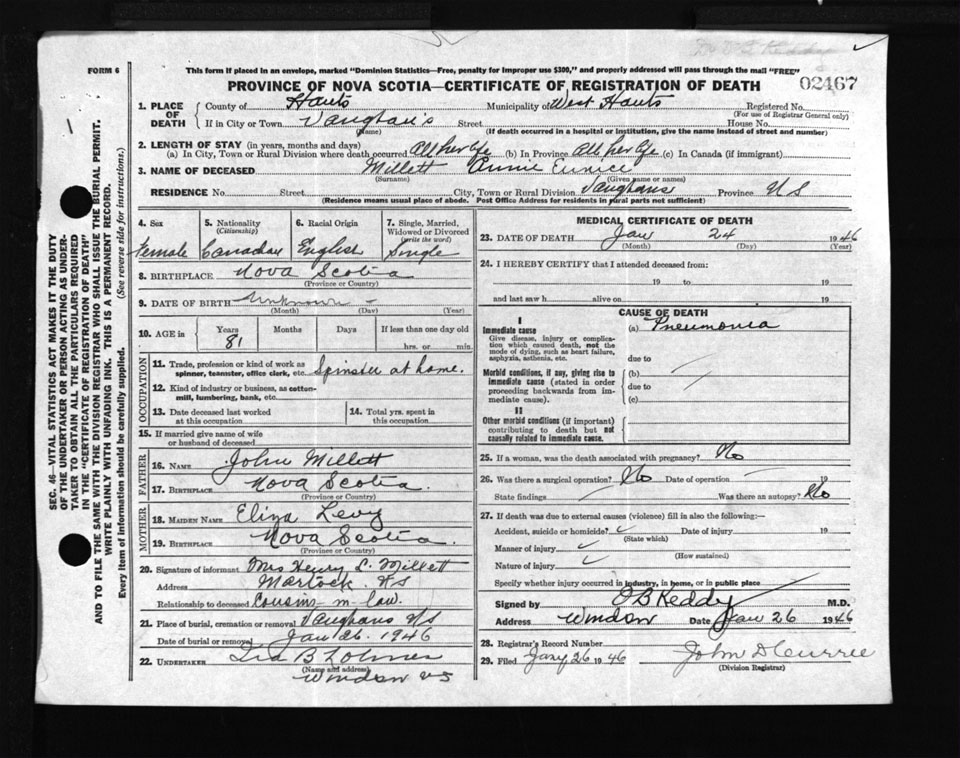 FORM 6
This form if placed in an envelope, marked "Dominion Statistics—Free, penalty for improper use $300," and properly addressed will pass through the mail "FREE"
PROVINCE OF NOVA SCOTIA—CERTIFICATE OF REGISTRATION OF DEATH
02467
1. PLACE OF DEATH
County of Hants Municipality of West Hants Registered No.
(For use of Registrar General only)
If in City or Town Vaughan's Street House No.
(Name) (If death occurred in a hospital or institution, give the name instead of street and number)
2. LENGTH OF STAY (in years, months and days)
(a) In City, Town or Rural Division where death occurred All her life (b) In Province All her life (c) In Canada (if immigrant)
3. NAME OF DECEASED Millett Annie Eunice
(Surname) (Given name or names)
RESIDENCE No. Street City, Town or Rural Division Vaughans Province N S
(Residence means usual place of abode. Post Office Address for residents in rural parts not sufficient)
4. Sex 5. Nationality (Citizenship) 6. Racial Origin 7. Single, Married, Widowed or Divorced (write the word)
Female Canadian English Single
8. BIRTHPLACE Nova Scotia
(Province or Country)
9. DATE OF BIRTH Unknown -
(Month) (Day) (Year)
10. AGE in Years Months Days If less than one day old
81 hrs. or min.
OCCUPATION
11. Trade, profession or kind of work as spinner, teamster, office clerk, etc. Spinster at home.
12. Kind of industry or business, as cotton-mill, lumbering, bank, etc.
13. Date deceased last worked at this occupation
14. Total yrs. spent in this occupation
15. If married give name of wife or husband of deceased
FATHER
16. NAME John Millett
17. BIRTHPLACE Nova Scotia.
(Province or Country)
MOTHER
18. MAIDEN NAME Eliza Levy
19. BIRTHPLACE Nova Scotia.
(Province or Country)
20. Signature of informant Mrs Henry L. Millett
Address Martock. N S
Relationship to deceased Cousin-in-law.
21. Place of burial, cremation or removal Vaughans N/S
Date of burial or removal Jan 26. 1946
22. UNDERTAKER
(Name and address)
Windsor N S
MEDICAL CERTIFICATE OF DEATH
23. DATE OF DEATH Jan 24 1946
(Month) (Day) (Year)
24. I HEREBY CERTIFY that I attended deceased from:
19 to 19
and last saw h alive on 19
CAUSE OF DEATH
I
Immediate cause (a) Pneumonia
Give disease, injury or complication which caused death, not the mode of dying, such as heart failure, asphyxia, asthenia, etc.
due to
Morbid conditions, if any, giving rise to immediate cause (stated in order proceeding backwards from immediate cause)
(b)
due to
(c)
II
Other morbid conditions (if important) contributing to death but not causally related to immediate cause.
25. If a woman, was the death associated with pregnancy? No
26. Was there a surgical operation? No Date of operation 19
State findings Was there an autopsy? No
27. If death was due to external causes (violence) fill in also the following:—
Accident, suicide or homicide? Date of injury 19
(State which)
Manner of injury
(How sustained)
Nature of injury
Specify whether injury occurred in industry, in home, or in public place
Signed by O B Keddy M.D.
Address Windsor Date Jan 26 1946
28. Registrar's Record Number
29. Filed Jany 26 1946 John D Currie
(Division Registrar)
SEC. 46—VITAL STATISTICS ACT MAKES IT THE DUTY
OF THE UNDERTAKER OR PERSON ACTING AS UNDER-
TAKER TO OBTAIN ALL THE PARTICULARS REQUIRED
IN THE "CERTIFICATE OF REGISTRATION OF DEATH"
AND TO FILE THE SAME WITH THE DIVISION REGISTRAR WHO SHALL ISSUE THE BURIAL PERMIT.
WRITE PLAINLY WITH UNFADING INK. THIS IS A PERMANENT RECORD.
Every item of information should be carefully supplied. (See reverse side for instructions.)